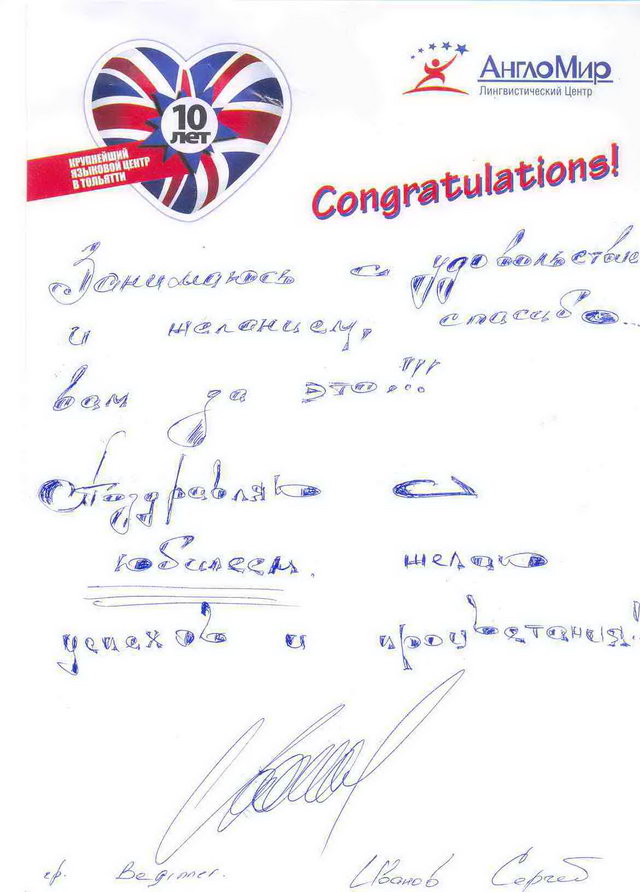 10
ЛЕТ
КРУПНЕЙШИЙ
ЯЗЫКОВОЙ ЦЕНТР
В ТОЛЬЯТТИ
АнглоМир
Лингвистический Центр
Congratulations!
Занимаюсь с удовольствием
и желанием, спасибо...
вам за это!!!
Поздравляю с
юбилеем. желаю
успехов и процветания!
гр. Beginner. Иванов Сергей